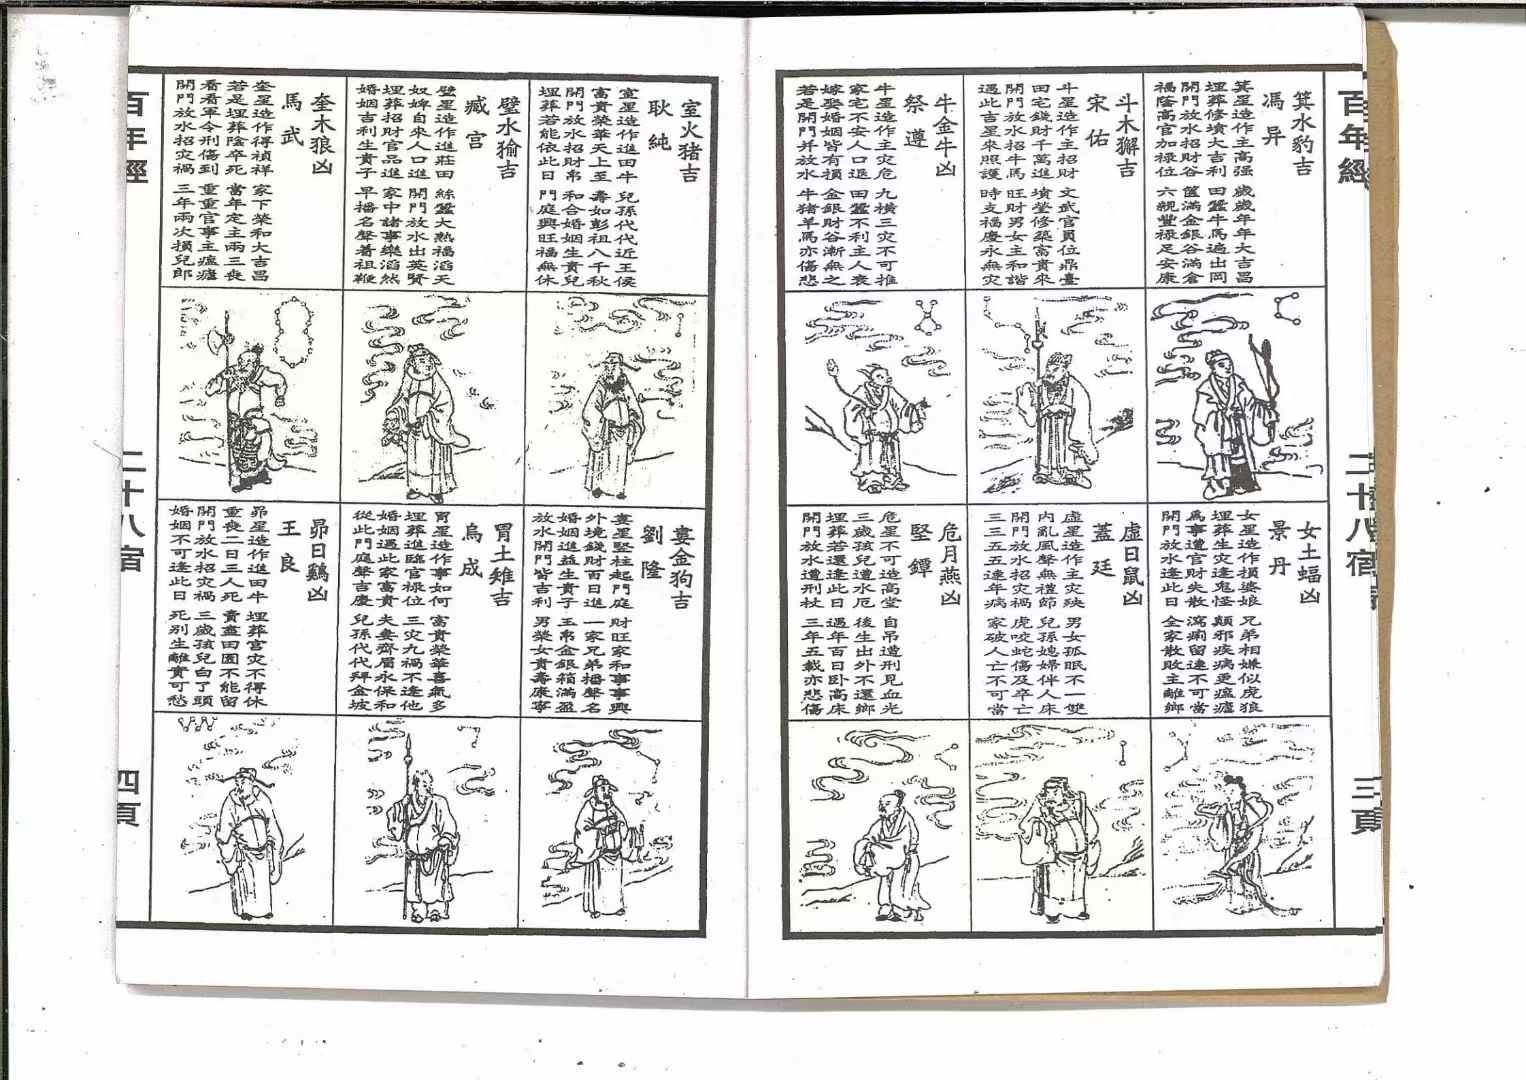 百年經
二十八宿
三頁
箕水豹吉
馮异
箕星造作主高强 歲歲年年大吉昌
埋葬修墳大吉利 田蠶牛馬遍出岡
開門放水招財谷 篋滿金銀谷滿倉
福蔭高官加祿位 六親豐祿足安康
斗木獬吉
宋佑
斗星造作主招財 文武官員位鼎臺
田宅錢財千萬進 墳塋修築富貴來
開門放水招牛馬 旺財男女主和諧
遇此吉星來照護 時支福慶永無灾
牛金牛凶
祭遵
牛星造作主灾危 九橫三灾不可推
家宅不安人口退 田蠶不利主人衰
嫁娶婚姻皆有損 金銀財谷漸無之
若是開門并放水 牛猪羊馬亦傷悲
女土蝠凶
景丹
女星造作損婆娘 兄弟相嫌似虎狼
埋葬生灾逢鬼怪 顛邪疾病更瘟㾮
爲事遭官財失散 瀉痢留連不可當
開門放水逢此日 全家散敗主離鄉
虛日鼠凶
蓋廷
虛星造作主灾殃 男女孤眠不一雙
内亂風聲無禮節 兒孫媳婦伴人床
開門放水招灾禍 虎咬蛇傷及卒亡
三三五五連年病 家破人亡不可當
危月燕凶
堅鐔
危星不可造高堂 自吊遭刑見血光
三歲孩兒遭水厄 後生出外不還鄉
埋葬若還逢此日 週年百日卧高床
開門放水遭刑杖 三年五載亦悲傷
室火猪吉
耿純
室星造作進田牛 兒孫代代近王侯
富貴榮華天上至 壽如彭祖八千秋
開門放水招財帛 和合婚姻生貴兒
埋葬若能依此日 門庭興旺福無休
壁水㺄吉
臧宫
壁星造作進莊田 絲蠶大熟福滔天
奴婢自來人口進 開門放水出英賢
埋葬招財官品進 家中諸事樂滔然
婚姻吉利生貴子 早播名聲著祖鞭
奎木狼凶
馬武
奎星造作得禎祥 家下榮和大吉昌
若是埋葬陰卒死 當年定主兩三喪
看看軍令刑傷到 重重官事主瘟㾮
開門放水招灾禍 三年兩次損兒郎
婁金狗吉
劉隆
婁星竪柱起門庭 財旺家和事事興
外境錢財百日進 一家兄弟播聲名
婚姻進益生貴子 玉帛金銀箱滿盈
放水開門皆吉利 男榮女貴壽康寧
胃土雉吉
烏成
胃星造作事如何 富貴榮華喜氣多
埋葬進臨官祿位 三灾九禍不逢他
婚姻遇此家富貴 夫妻齊眉永保和
從此門庭聲吉慶 兒孫代代拜金坡
昴日鷄凶
王良
昴星造作進田牛 埋葬官灾不得休
重喪二日三人死 賣盡田園不能留
開門放水招灾禍 三歲孩兒白了頭
婚姻不可逢此日 死别生離實可愁
百年經
二十八宿
四頁